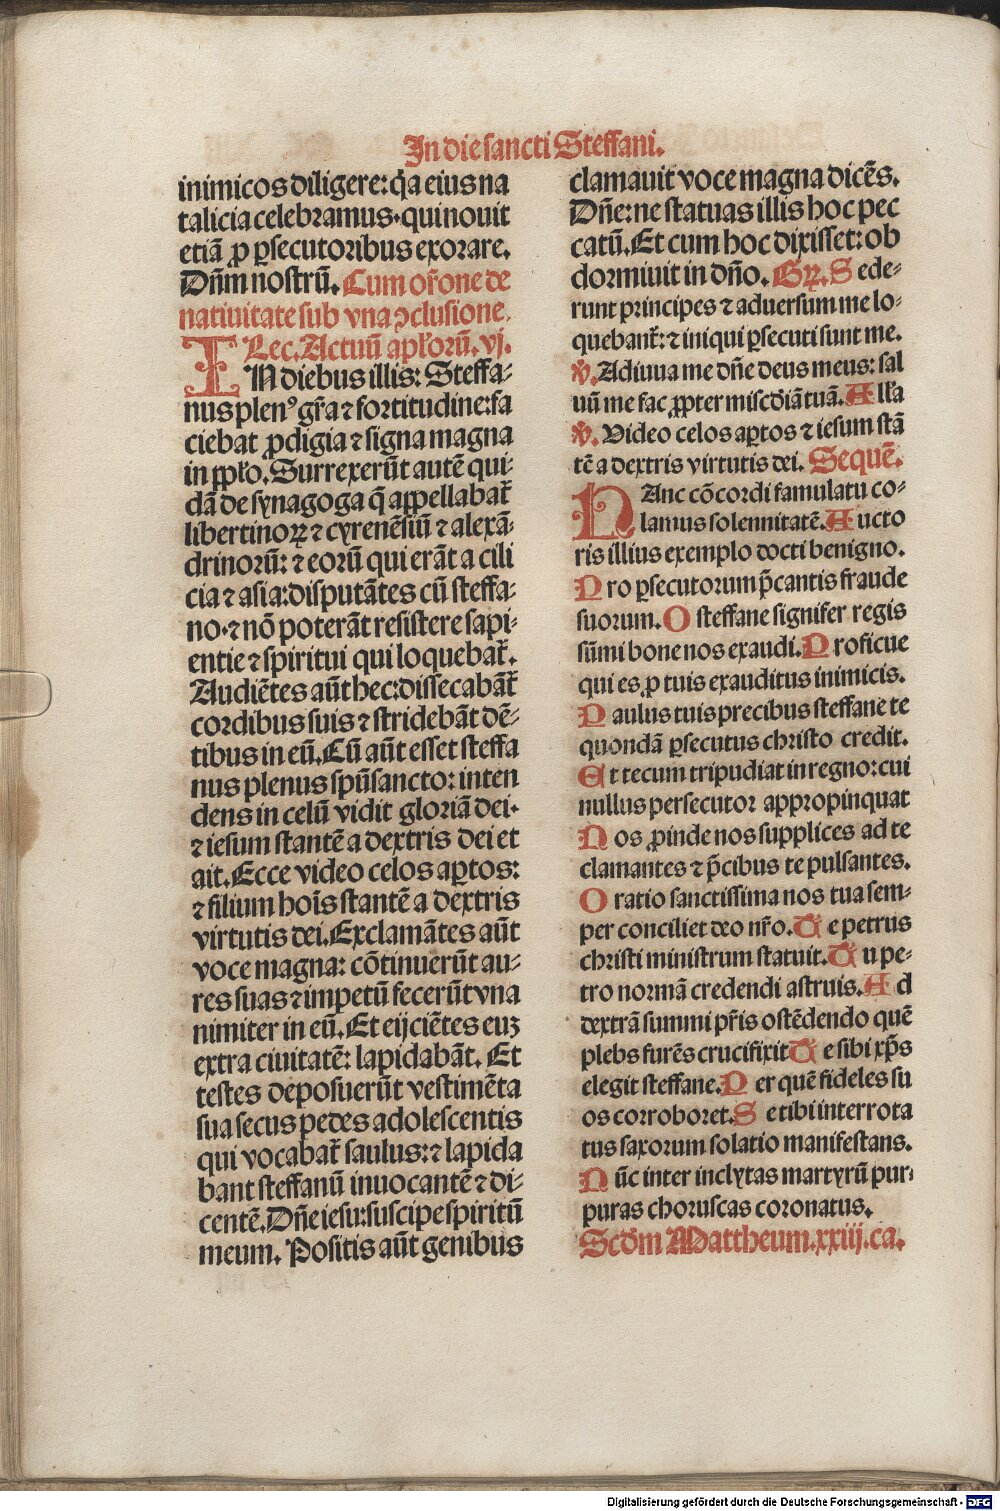 In die sancti Steffani.
inimicos diligere: q̃a eius na
talicia celebramus. qui novit
etiã ꝓ ꝑsecutoribus exorare.
Dñm nostrũ. Cum or̃one de
natiuitate sub vna ↄclusione.
Lec. Actuũ apl'orũ. vj.
IN diebus illis: Steffa⸗
nus plenꝰ gr̃a ⁊ fortitudine: fa
ciebat ꝓdigia ⁊ signa magna
in ppl'o. Surrexerũt autẽ qui⸗
dã de synagoga q̃ appellabat̃
libertinoꝝ ⁊ cyrenẽsiũ ⁊ alexã⸗
drinorũ: ⁊ eorũ qui erãt a cili
cia ⁊ asia: disputãtes cũ steffa⸗
no. ⁊ nõ poterãt resistere sapi⸗
entie ⁊ spiritui qui loquebat̃.
Audiẽtes aũt hec: dissecabãt̃
cordibus suis ⁊ stridebãt dẽ⸗
tibus in eũ. Cũ aũt esset steffa
nus plenus spũsancto: inten
dens in celũ vidit gloriã dei.
⁊ iesum stantẽ a dextris dei et
ait. Ecce video celos aꝑtos:
⁊ filium hoĩs stantẽ a dextris
virtutis dei. Exclamãtes aũt
voce magna: cõtinuerũt au⸗
res suas ⁊ impetũ fecerũt vna
nimiter in eũ. Et eijciẽtes euꝫ
extra ciuitatẽ: lapidabãt. Et
testes deposuerũt vestimẽta
sua secus pedes adolescentis
qui vocabat̃ saulus: ⁊ lapida
bant steffanũ inuocantẽ ⁊ di⸗
centẽ. Dñe iesu: suscipe spiritũ
meum. Positis aũt genibus
clamauit voce magna dicẽs.
Dñe: ne statuas illis hoc pec
catũ. Et cum hoc dixisset: ob
dormiuit in dño. Gꝝ. Sede⸗
runt principes ⁊ aduersum me lo⸗
quebant̃: ⁊ iniqui ꝑsecuti sunt me.
℣. Adiuua me dñe deus meus: sal
uũ me fac ꝓpter mĩscd'iã tuã. All'a
℣. Video celos aꝑtos ⁊ iesum stã
tẽ a dextris virtutis dei. Sequẽ.
HAnc cõcordi famulatu co⸗
lamus solennitatẽ. Aucto
ris illius exemplo docti benigno.
Pro ꝑsecutorum p̃cantis fraude
suorum. O steffane signifer regis
sũmi bone nos exaudi. Proficue
qui es ꝓ tuis exauditus inimicis.
Paulus tuis precibus steffane te
quondã ꝑsecutus christo credit.
Et tecum tripudiat in regno: cui
nullus persecutor appropinquat
Nos ꝓinde nos supplices ad te
clamantes ⁊ p̃cibus te pulsantes.
Oratio sanctissima nos tua sem⸗
per conciliet deo nr̃o. Te petrus
christi ministrum statuit. Tu pe⸗
tro normã credendi astruis. Ad
dextrã summi pr̃is ostẽdendo quẽ
plebs furẽs crucifixit Te sibi xp̃s
elegit steffane. Per quẽ fideles su
os corroboret. Se tibi inter rota
tus saxorum solatio manifestans.
Nũc inter inclytas martyrũ pur⸗
puras choruscas coronatus.
Scd'm Mattheum. xxiij. ca.
Digitalisierung gefördert durch die Deutsche Forschungsgemeinschaft - DFG